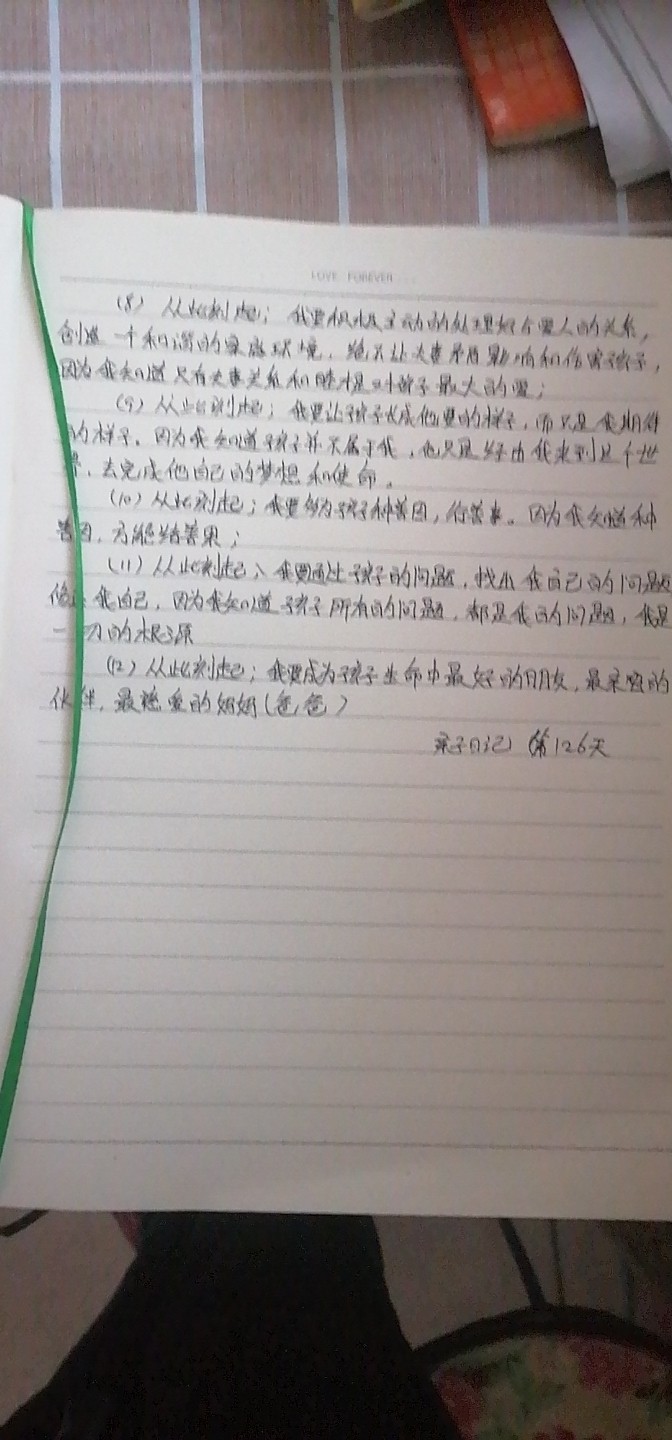 LOVE FOREVER
(8) 从此刻起；我要积极主动的处理好合爱人的关系,
创造一个和谐的家庭环境，绝不让夫妻矛盾影响和伤害孩子，
因为我知道只有夫妻关系和睦才是对孩子最大的爱；
(9) 从此刻起；我要让孩子长成他要的样子，而不是我期待
的样子。因为我知道孩子并不属于我，他只是经由我来到这个世
，去完成他自己的梦想和使命。
(10) 从此刻起；我要多为孩子种善因，行善事。因为我知道种
善因，方能结善果；
(11) 从此刻起、我要通过孩子的问题，找出我自己的问题
我自己，因为我知道孩子所有的问题，都是我的问题，我是
一切的根源
(12) 从此刻起；我要成为孩子生命中最好的朋友，最亲密的
伙伴，最稳重的妈妈(爸爸)
亲子日记 第126天